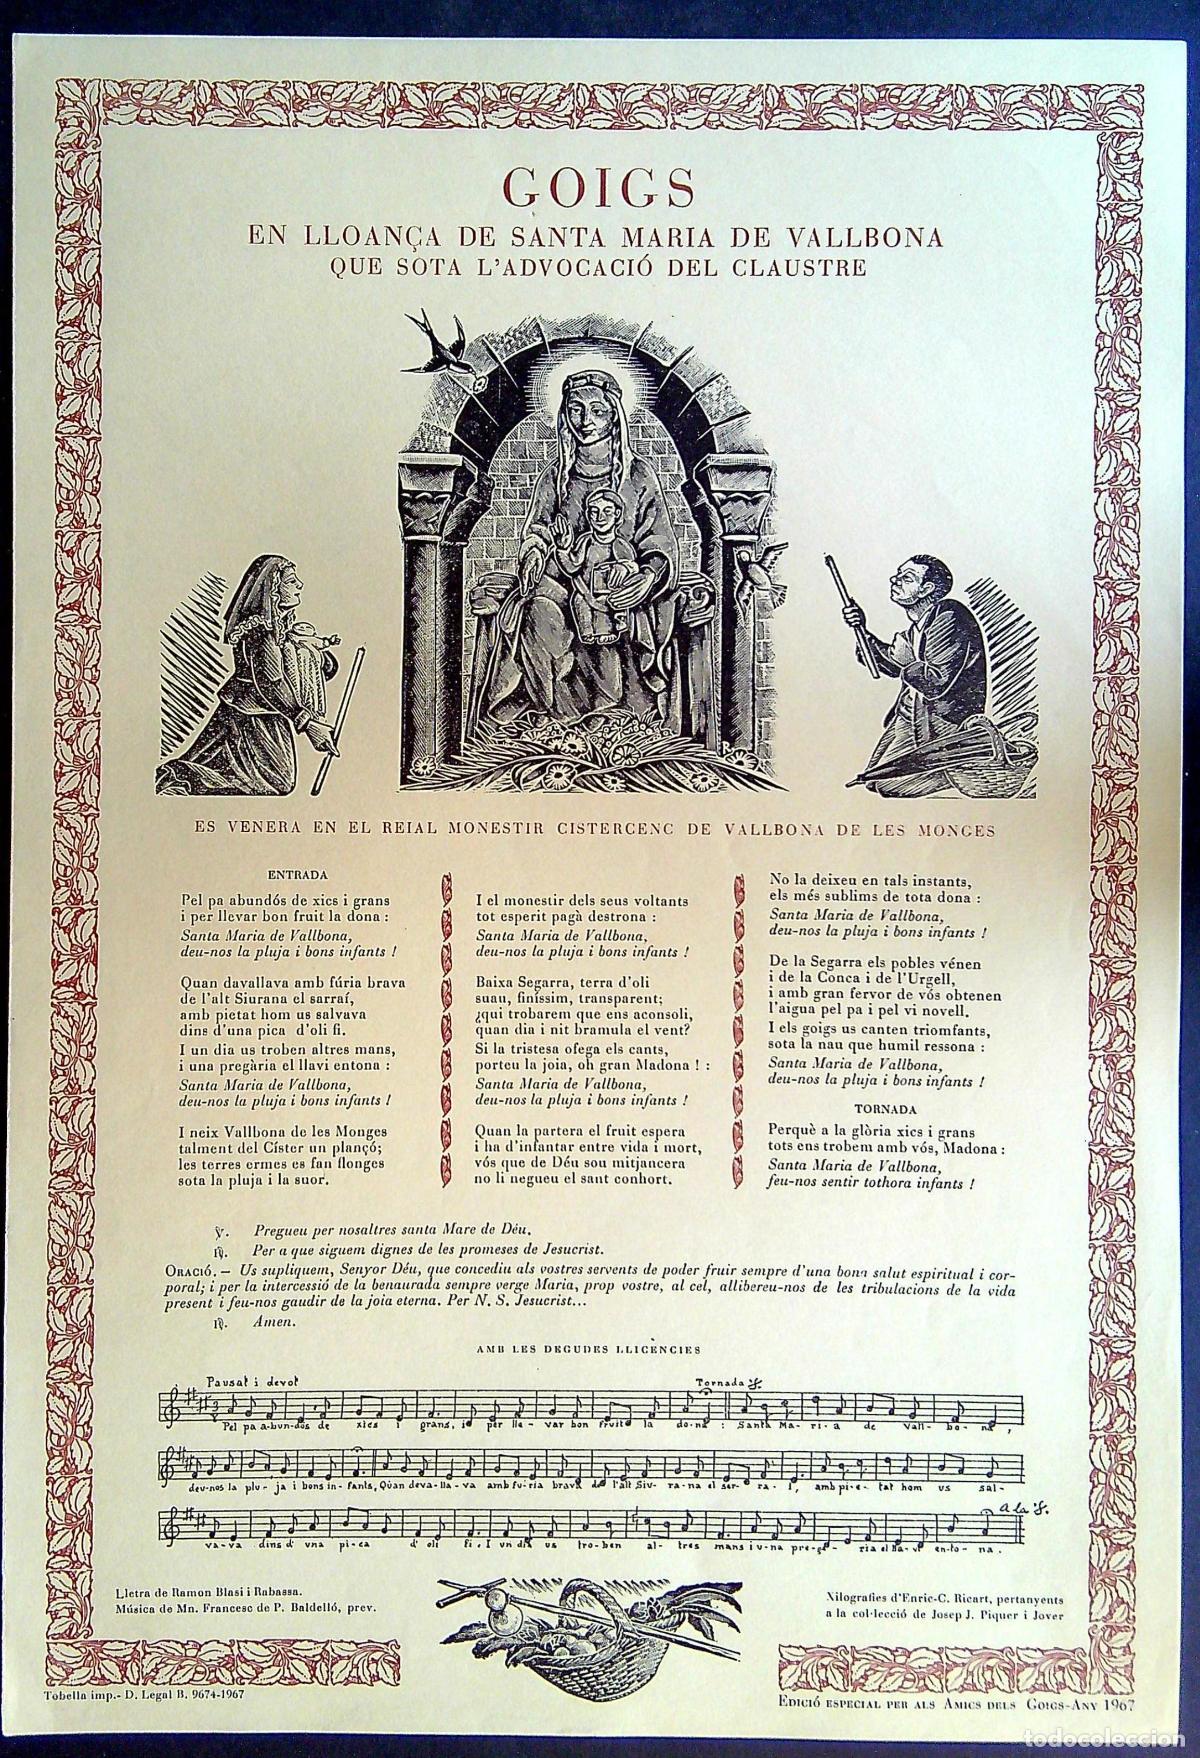 GOIGS
EN LLOANÇA DE SANTA MARIA DE VALLBONA
QUE SOTA L'ADVOCACIÓ DEL CLAUSTRE
ES VENERA EN EL REIAL MONESTIR CISTERCENC DE VALLBONA DE LES MONGES
ENTRADA
Pel pa abundós de xics i grans
i per llevar bon fruit la dona :
Santa Maria de Vallbona,
deu-nos la pluja i bons infants !
Quan davallava amb fúria brava
de l'alt Siurana el sarraí,
amb pietat hom us salvava
dins d'una pica d'oli fi.
I un dia us troben altres mans,
i una pregària el llavi entona :
Santa Maria de Vallbona,
deu-nos la pluja i bons infants !
I neix Vallbona de les Monges
talment del Císter un plançó;
les terres ermes es fan flonges
sota la pluja i la suor.
I el monestir dels seus voltants
tot esperit pagà destrona :
Santa Maria de Vallbona,
deu-nos la pluja i bons infants !
Baixa Segarra, terra d'oli
suau, finíssim, transparent;
¿qui trobarem que ens aconsoli,
quan dia i nit bramula el vent?
Si la tristesa ofega els cants,
porteu la joia, oh gran Madona ! :
Santa Maria de Vallbona,
deu-nos la pluja i bons infants !
Quan la partera el fruit espera
i ha d'infantar entre vida i mort,
vós que de Déu sou mitjancera
no li negueu el sant conhort.
No la deixeu en tals instants,
els més sublims de tota dona :
Santa Maria de Vallbona,
deu-nos la pluja i bons infants !
De la Segarra els pobles vénen
i de la Conca i de l'Urgell,
i amb gran fervor de vós obtenen
l'aigua pel pa i pel vi novell.
I els goigs us canten triomfants,
sota la nau que humil ressona :
Santa Maria de Vallbona,
deu-nos la pluja i bons infants !
TORNADA
Perquè a la glòria xics i grans
tots ens trobem amb vós, Madona :
Santa Maria de Vallbona,
feu-nos sentir tothora infants !
℣. Pregueu per nosaltres santa Mare de Déu.
℟. Per a que siguem dignes de les promeses de Jesucrist.
ORACIÓ. — Us supliquem, Senyor Déu, que concediu als vostres servents de poder fruir sempre d'una bona salut espiritual i cor-
poral; i per la intercessió de la benaurada sempre verge Maria, prop vostre, al cel, allibereu-nos de les tribulacions de la vida
present i feu-nos gaudir de la joia eterna. Per N. S. Jesucrist...
℟. Amen.
AMB LES DEGUDES LLICÈNCIES
Pausat i devot Tornada
Pel pa a-bun-dós de xics i grans, i per lle-var bon fruit la dona : Santa Ma-ri-a de Vall-bo-na,
deu-nos la plu-ja i bons in-fants, Quan deva-lla-va amb fu-ria brava de l'alt Siu-rana el ser-ra-í, amb pie-tat hom us sal-
va-va dins d' una pi-ca d' oli fi. I un dia us tro-ben al-tres mans i u-na pre-gà-ria el lla-vi en-to-na.
A la
Lletra de Ramon Blasi i Rabassa.
Música de Mn. Francesc de P. Baldelló, prev.
Xilografies d'Enric-C. Ricart, pertanyents
a la col·lecció de Josep J. Piquer i Jover
Tobella imp.- D. Legal B. 9674-1967
EDICIÓ ESPECIAL PER ALS AMICS DELS GOIGS-ANY 1967
todocoleccion